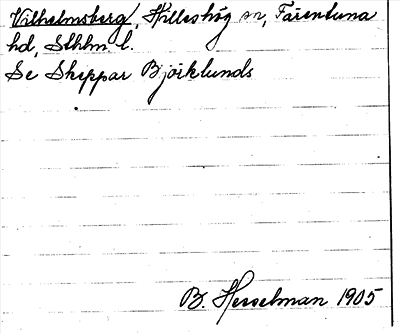 Vilhelmsberg, Hilleshög sn, Färentuna
hd, Sthlm l.
Se Skeppar Björklunds
B. Hesselman 1905